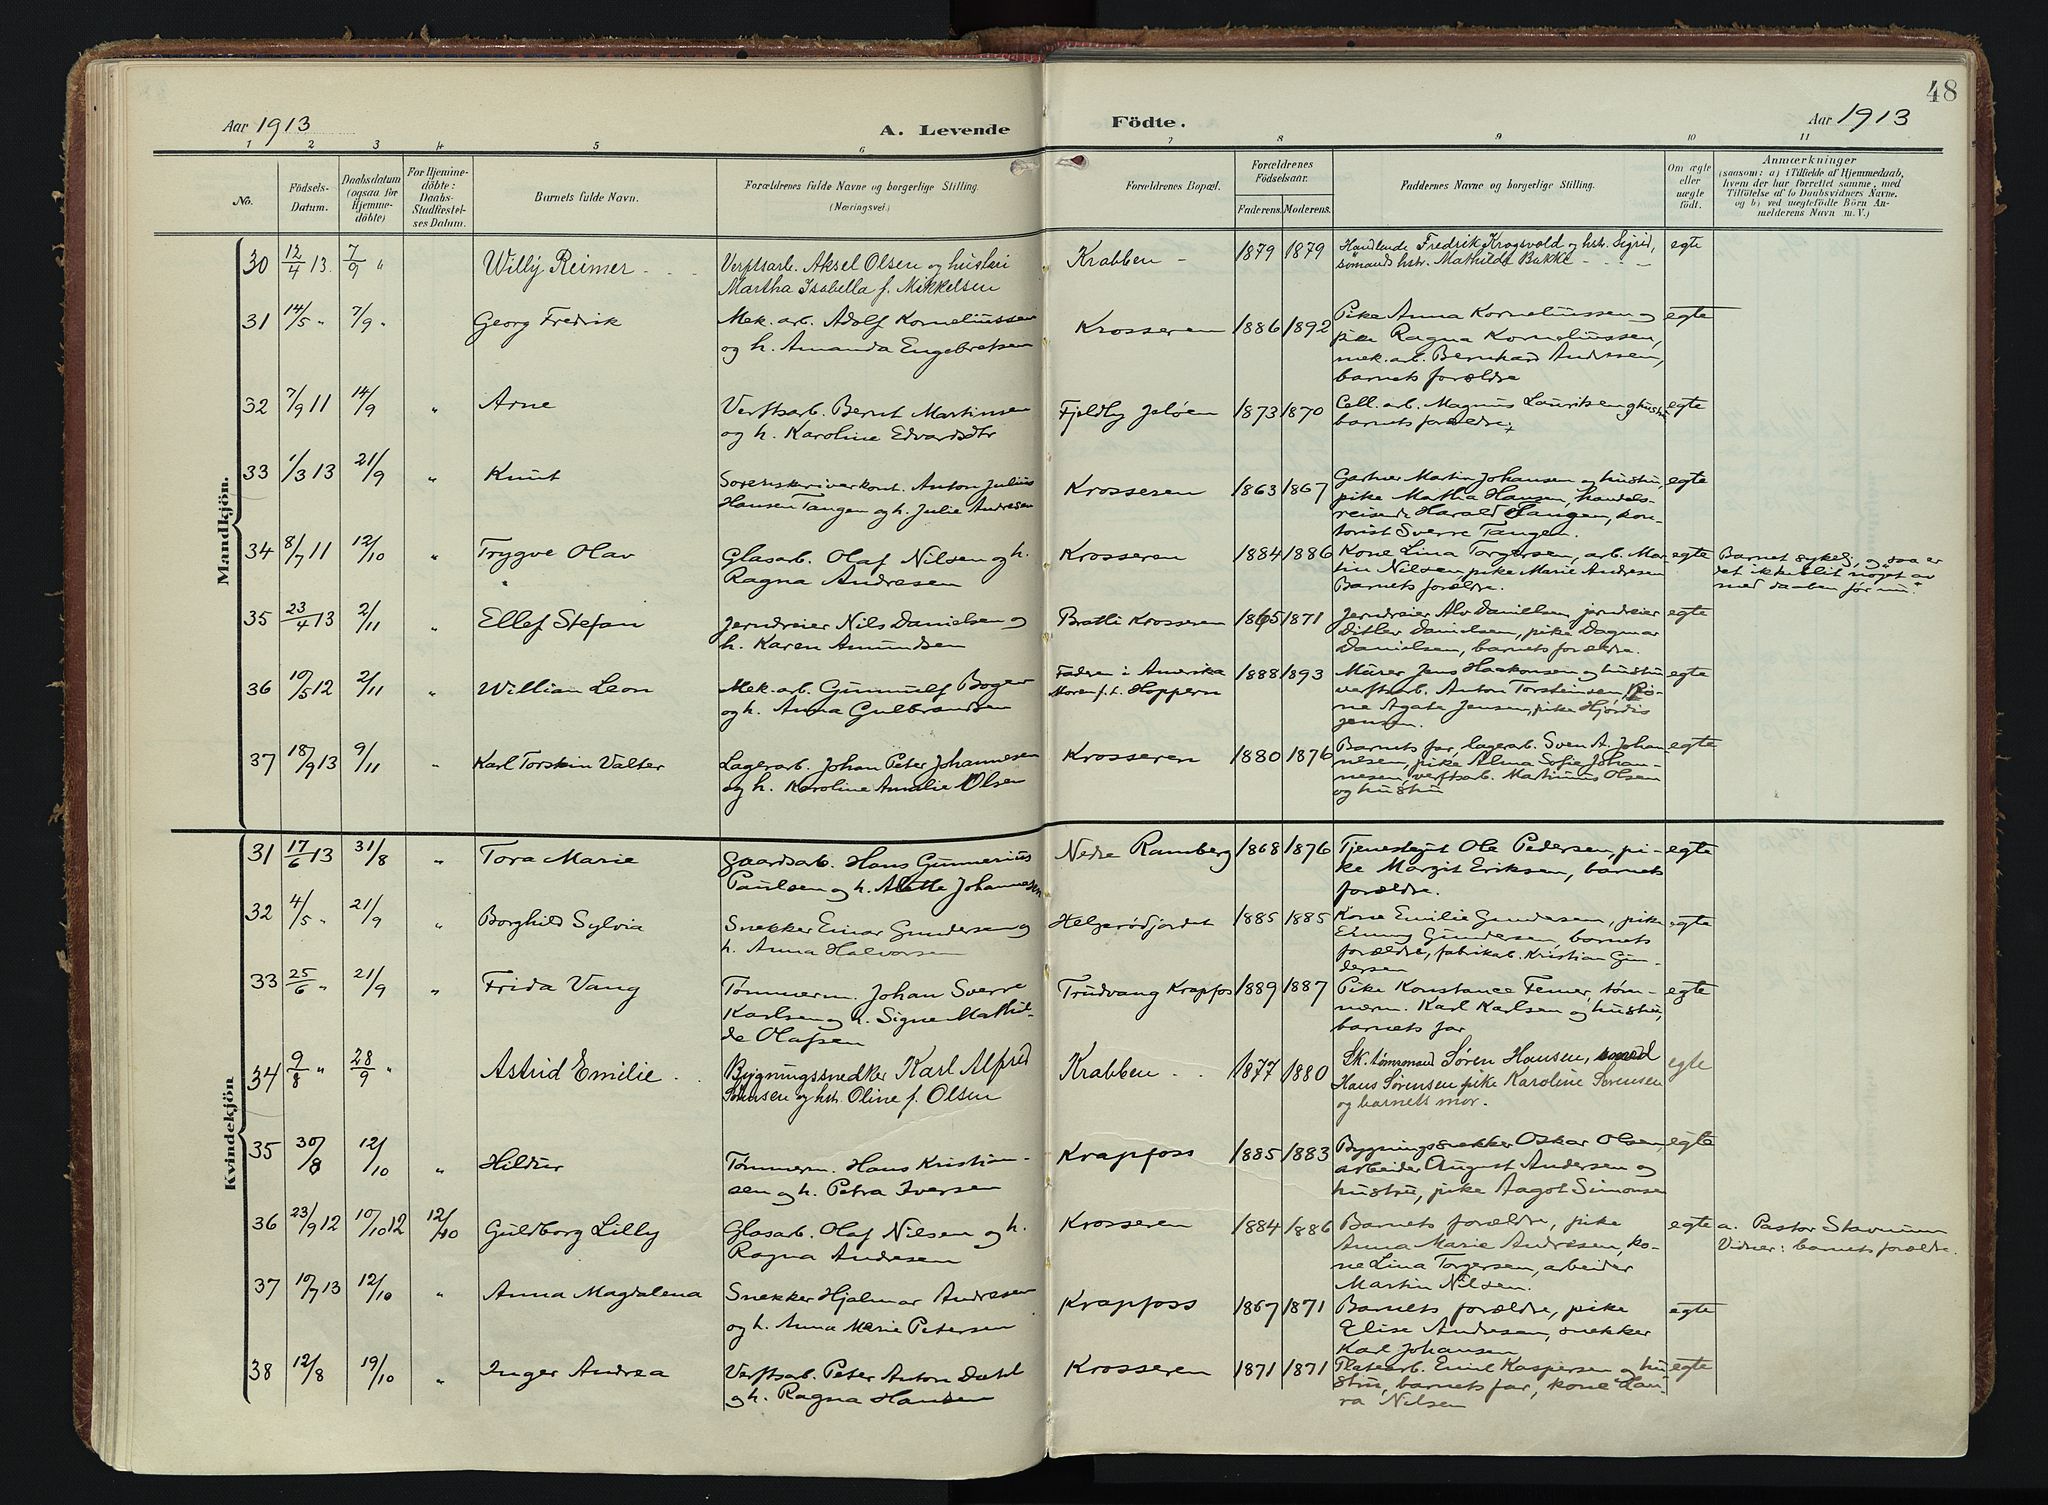 48
Aar 1913
A. Levende
Födte.
Aar 1913
1 2 3 4 5 6 7 8 9 10 11
No.
Födsels-Datum.
Daabsdatum (ogsaa for Hjemme-döbte)
For Hjemme-döbte: Daabs-Stadfæstel-ses Datum.
Barnets fulde Navn.
Forældrenes fulde Navne og borgerlige Stilling.
(Næringsvei.)
Forældrenes Bopæl.
Forældrenes Födselsaar.
Faderens. Moderens.
Faddernes Navne og borgerlige Stilling.
Om ægte eller uægte födt.
Anmærkninger
(saasom: a) i Tilfælde af Hjemmedaab,
hvem der har forrettet samme, med
Tilföielse af to Daabsvidners Navne.
og b) ved uægtefödte Börn An-
melderens Navn m. V.)
Mandkjön.
30 12/4 13. 7/9 " Willy Reimer Verftsarb. Aksel Olsen og hustru Krabben 1879 1879 Handlende Fredrik Krogsvold og hstr. Sigrid, egte
Martha Isabella f. Mikkelsen sömands hstr. Mathilde Bukke
31 14/5 " 7/9 " Georg Fredrik Mek. arb. Adolf Korneliussen Krosseren 1886 1892 Pike Anna Korneliussen og egte
og h. Amanda Engebretsen pike Ragna Korneliussen,
mek. arb. Bernhard Andresen,
barnets forældre
32 7/9 11 14/9 " Arne Verftsarb. Bernt Martinsen Fjeldly Jeløen 1873 1870 Cell. arb. Magnus Lauritsen og hustru egte
og h. Karoline Edvardsdtr barnets forældre
33 1/3 13 21/9 " Knut Sorenskriverkont. Anton Julius Krosseren 1863 1867 Gartner Martin Johansen og hustru egte
Hansen Tangen og h. Julie Andresen pike Martha Hansen, handels-
reisende Harald Hangen, kon-
torist Sverre Tangen.
34 8/7 11 12/10 " Trygve Olav Glasarb. Olaf Nilsen og h. Krosseren 1884 1886 Kone Lina Torgersen, arb. Mar- egte Barnet sykelig, og saa er
Ragna Andresen tin Nilsen, pike Marie Andresen det ikke blit noget av
Barnets forældre. med daaben før nu.
35 23/4 13 2/11 " Ellef Stefan Jerndreier Nils Danielsen og Bratli Krosseren 1865 1871 Jerndreier Alv Danielsen, jerndreier egte
h. Karen Amundsen Ditlev Danielsen, pike Dagmar
Danielsen, barnets forældre.
36 10/5 12 2/11 " William Leon Mek. arb. Gunnulf Boger Faderen i Amerika 1888 1893 Murer Jens Haakonsen og hustru egte
og h. Anna Gulbrandsen Moren f. t. Hoppern verftsarb. Anton Torsteinsen, ko-
ne Agate Jensen, pike Hjørdis
Jensen.
37 18/9 13 9/11 " Karl Torstein Valter Lagerarb. Johan Peter Johannesen Krosseren 1880 1876 Barnets far, lagerarb. Sven A. Johan- egte
og h. Karoline Amalie Olsen nesen, pike Alma Sofie Johan-
nesen, verftsarb. Martinius Olsen
og hustru
Kvindekjön
31 17/6 13 31/8 " Tora Marie Gaardsarb. Hans Gunnerius Nedre Ramberg 1868 1876 Tjenestegut Ole Pedersen, pi- egte
Paulsen og h. Alette Johannesen ke Margit Eriksen, barnets
forældre.
32 4/5 " 21/9 " Borghild Sylvia Snekker Einar Gundersen og Helgerødjordet 1885 1885 Kone Emilie Gundersen, pike egte
h. Anna Halvorsen Gundersen, barnets
forældre, fabrikarb. Kristian Gun-
dersen
33 25/6 " 21/9 " Frida Vang Tømmerm. Johan Sverre Trudvang Krapfos 1889 1887 Pike Konstance Femer, tøm- egte
Karlsen og h. Signe Mathil- merm. Karl Karlsen og hustru,
de Olafsen barnets far
34 9/8 " 28/9 " Astrid Emilie Bygningssnedker Karl Alfred Krabben 1877 1880 Sk. tømmermand Søren Hansen, smed egte
Sørensen og hstr. Oline f. Olsen Hans Sørensen pike Karoline Sørensen
og barnets mor.
35 30/8 12/10 " Hildur Tømmerm. Hans Kristian- Krapfoss 1885 1883 Bygningssnekker Oskar Olsen, egte
sen og h. Petra Iversen arbeider August Andersen og
hustru, pike Aagot Simonsen
36 23/9 12 10/10 12 12/10 Guldborg Lilly Glasarb. Olaf Nilsen og h. Krosseren 1884 1886 Barnets forældre, pike egte a. Pastor Stavnum
Ragna Andresen Anna Marie Andresen, ko- Vidner: barnets forældre.
ne Lina Torgersen, arbeider
Martin Nilsen.
37 10/7 13 12/10 " Anna Magdalena Snekker Hjalmar Andresen Krapfoss 1867 1871 Barnets forældre, pike egte
og h. Anna Marie Petersen Elise Andresen, snekker
Karl Johansen
38 12/8 19/10 " Inger Andrea Verftsarb. Peter Anton Dahl Krosseren 1871 1871 Platearb. Emil Kaspersen og hu- egte
og h. Ragna Hansen stru, barnets far, kone Lau-
ra Nilsen